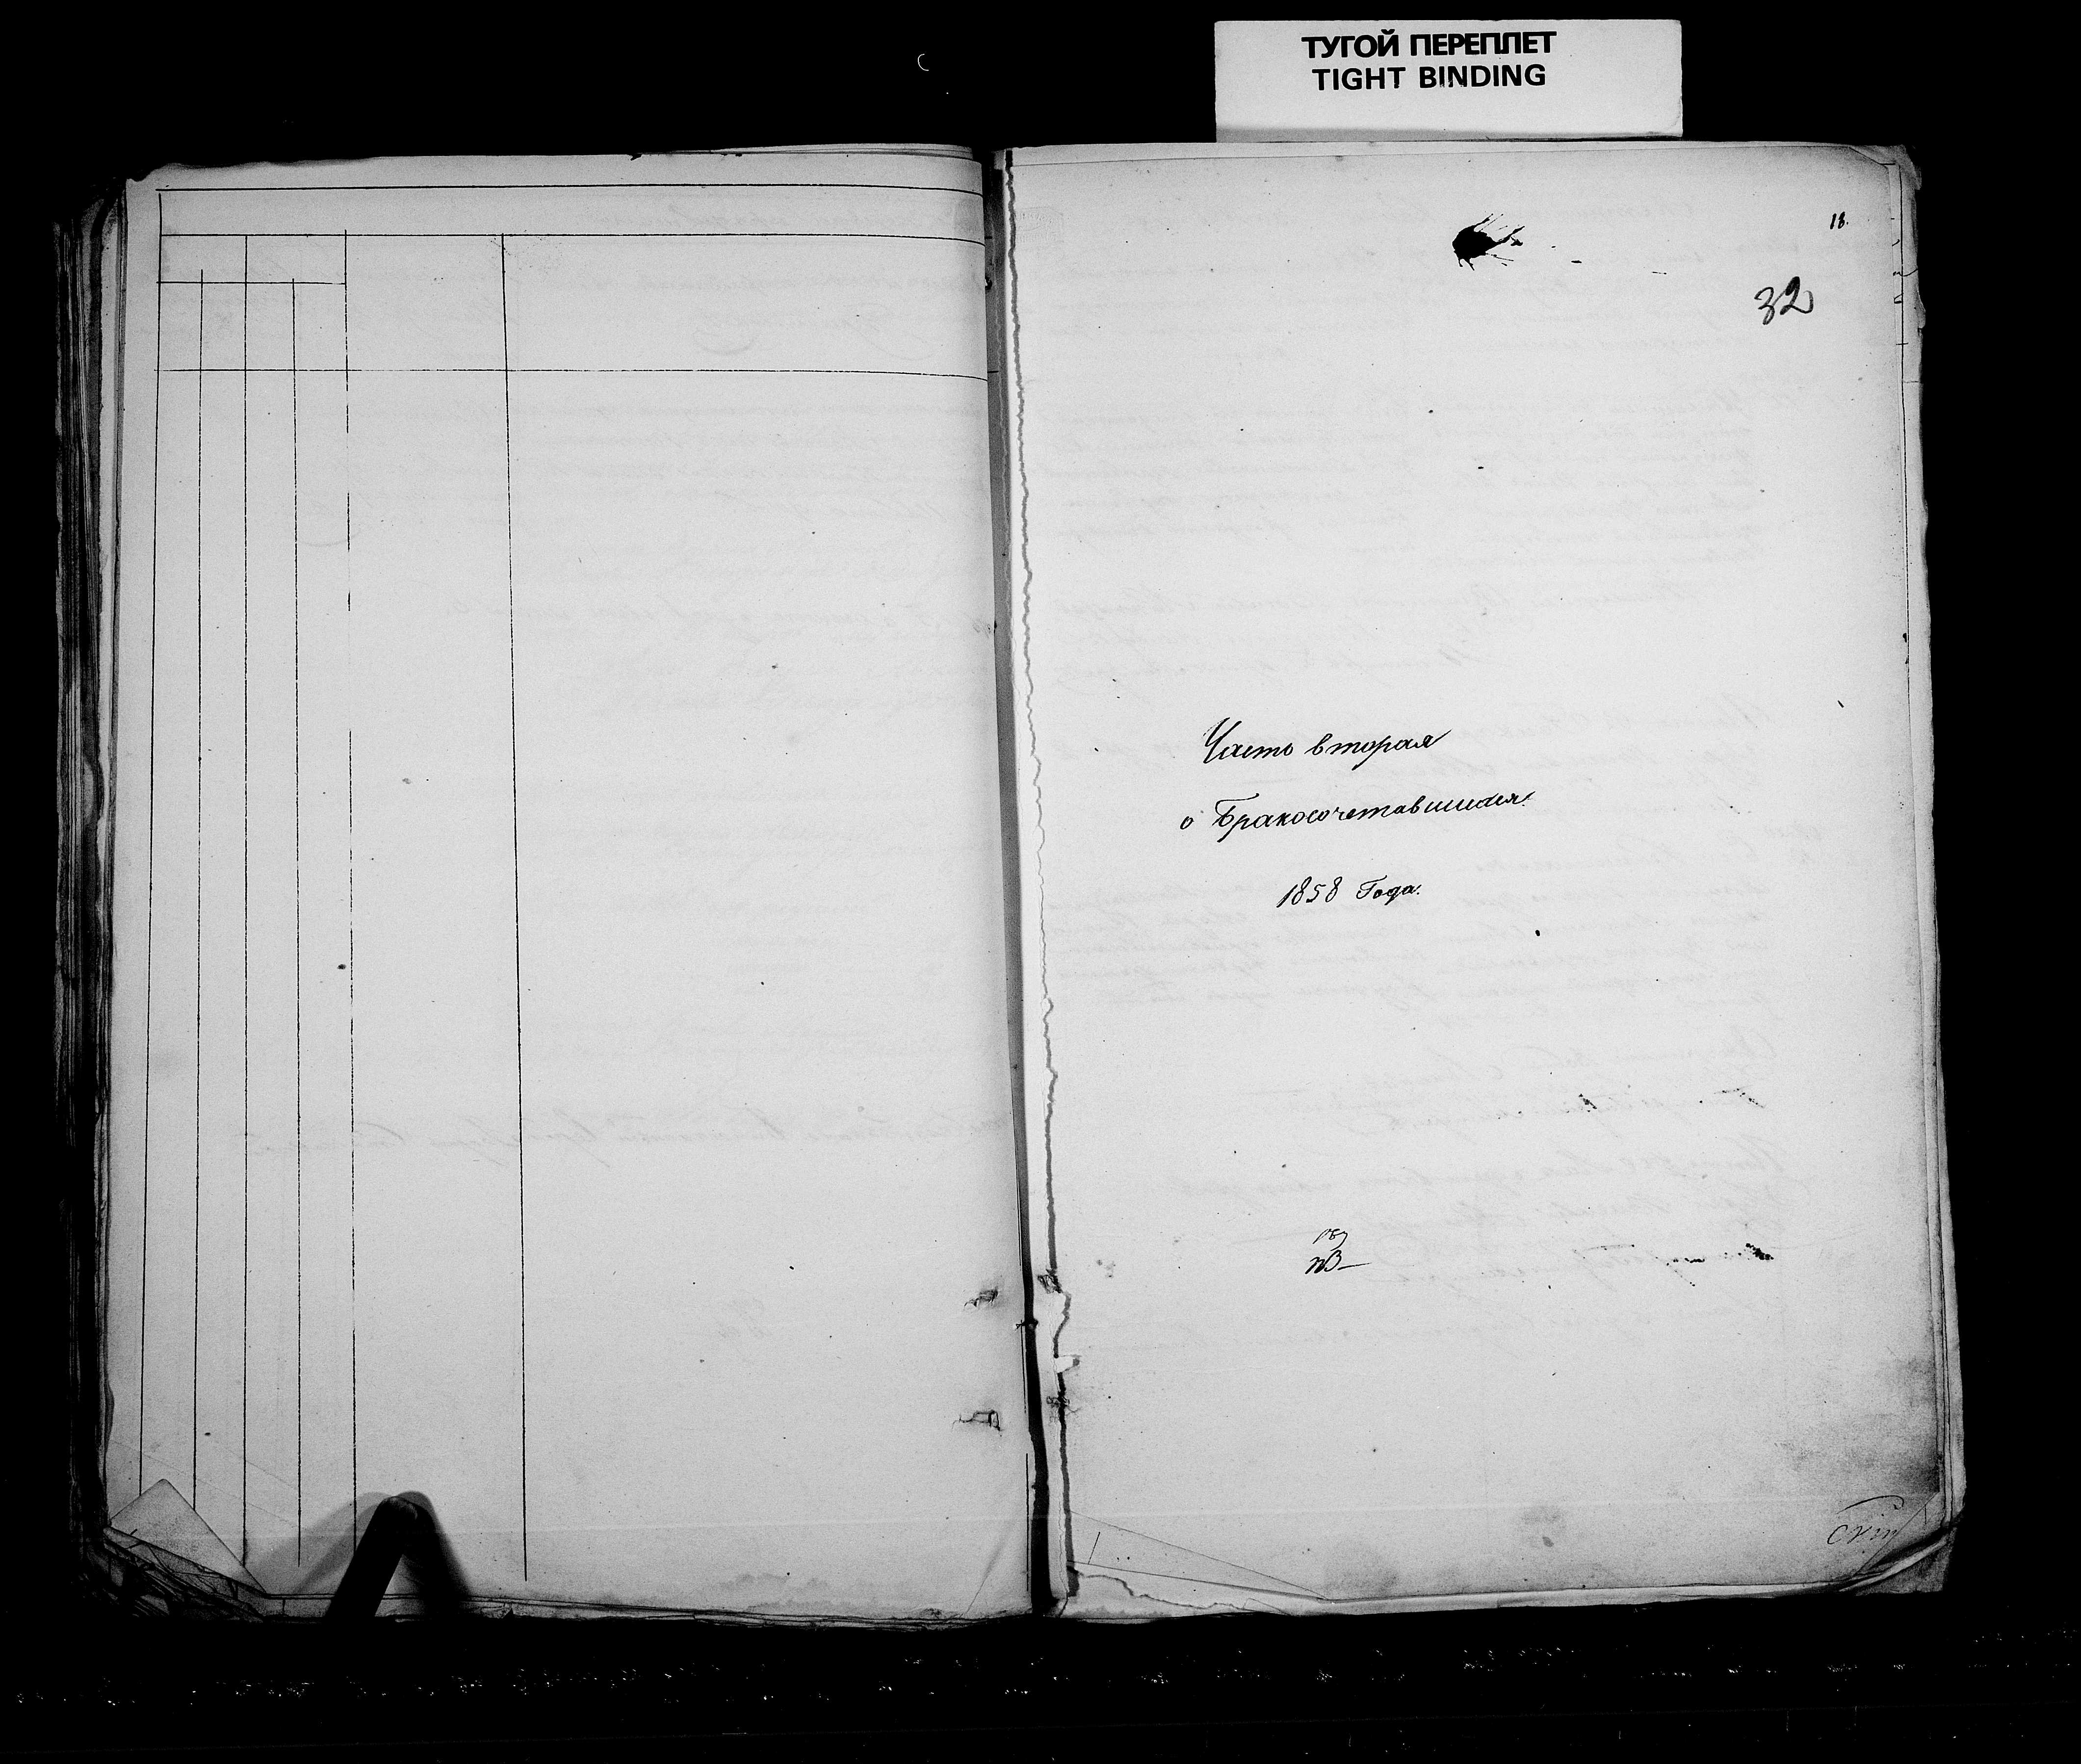 ТУГОЙ ПЕРЕПЛЕТ
TIGHT BINDING
18.
32
Часть вторая
о Бракосочетавшихся
1858 Года.